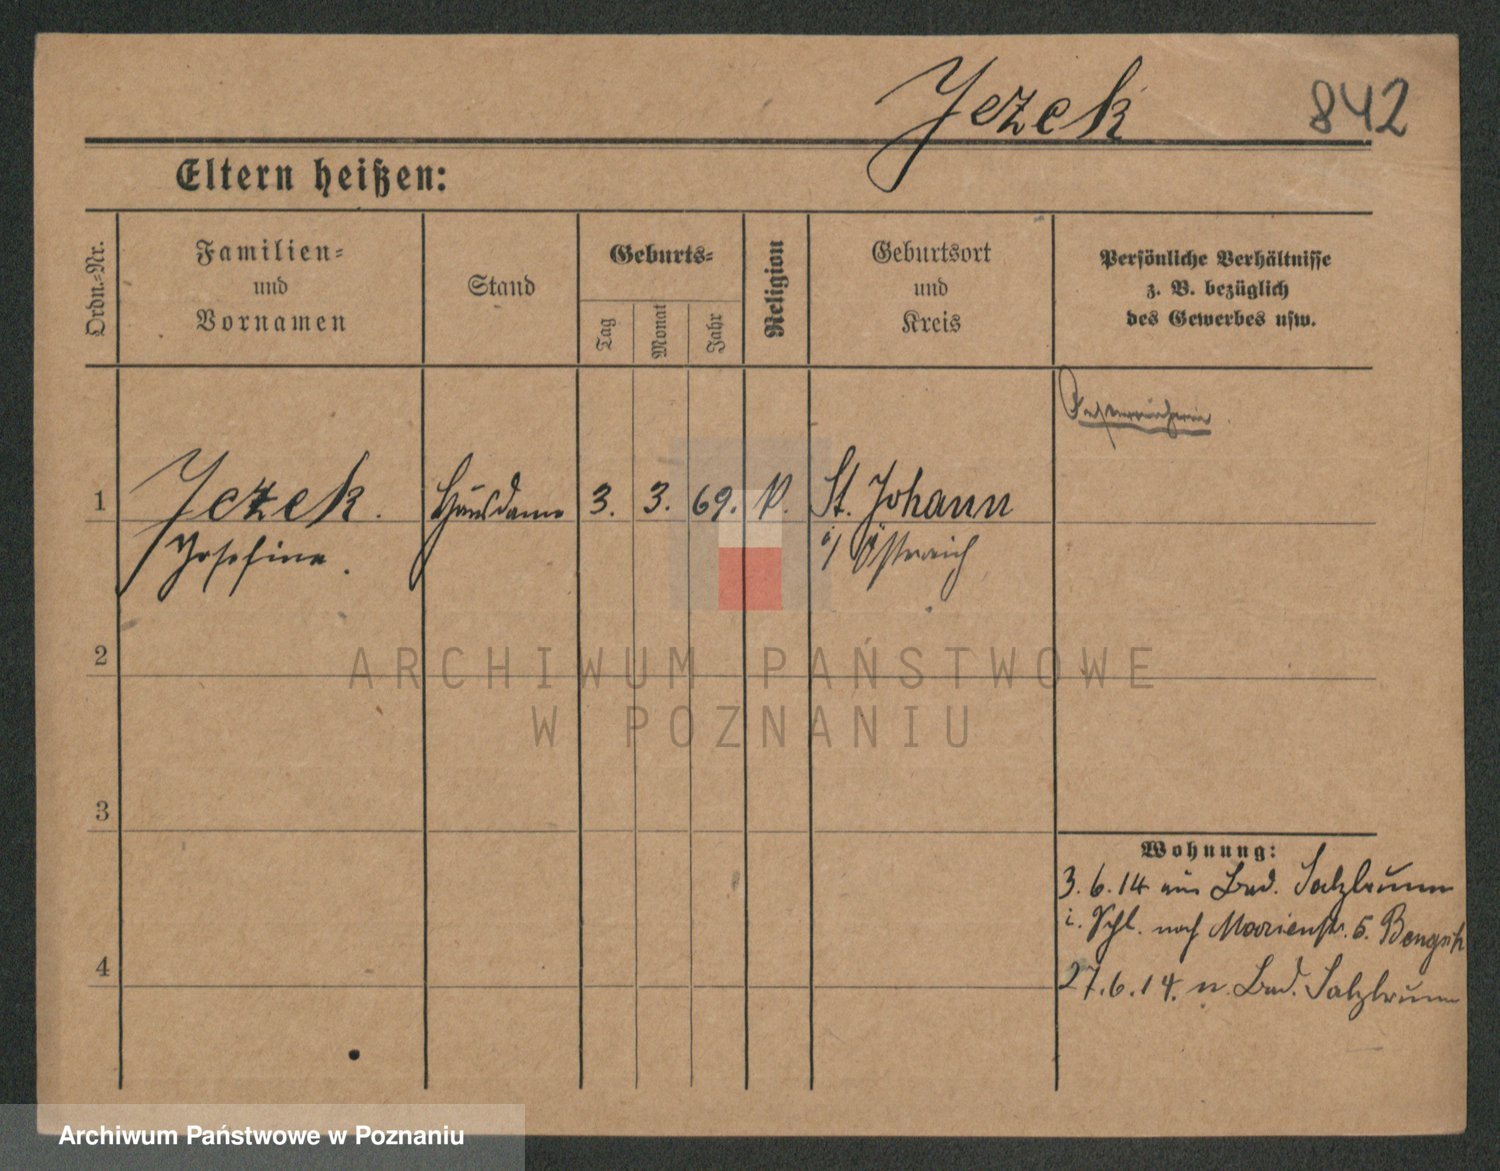 Jezek 842
Eltern heißen:
Ordn.-Nr.
Familien-
und
Vornamen
Stand
Geburts-
Tag
Monat
Jahr
Religion
Geburtsort
und
Kreis
Persönliche Verhältnisse
z. B. bezüglich
des Gewerbes usw.
Oesterreicherin
1 Jezek. Hausdame 3. 3. 69. St. Johann
Josefine. i/ Östreich
2
3
4
Wohnung:
3.6.14 aus Bad. Salzbrunn
i. Schl. nach Marienstr. 5.
27.6.14. n. Bad. Salzbrunn
ARCHIWUM PAŃSTWOWE
W POZNANIU
Archiwum Państwowe w Poznaniu